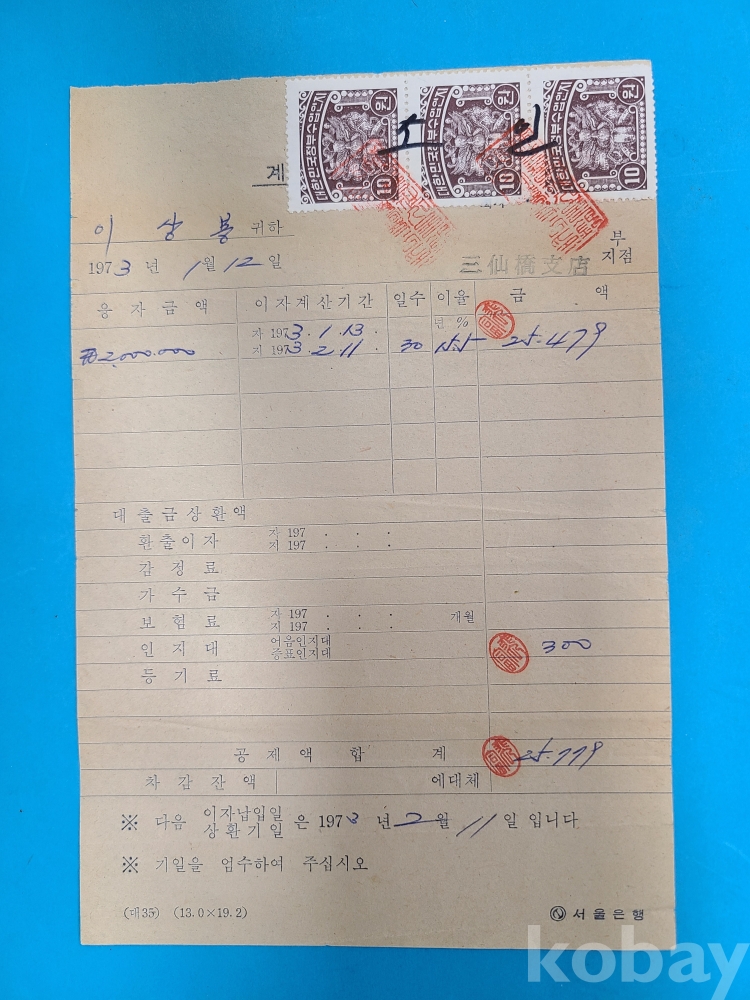 대한민국정부수입인지 10원 대한민국정부수입인지 10원 대한민국정부수입인지 10원
소 인
계
이 상 봉 귀하
부
1973 년 1월 12 일 三仙橋支店 지점
융자금액 이자계산기간 일수 이율 금 액
자 1973. 1. 13. 년 %
₩2,000.000 지 1973. 2. 11 30 15.5 25.479
대출금상환액
환출이자 자 197 . . .
지 197 . . .
감정료
가수금
보험료 자 197 . . . 개월
지 197 . . .
인지대 어음인지대 300
증표인지대
등기료
공제액합 계 25.779
차감잔액 에대체
※ 다음 이자납입일 은 1973 년 2월 11 일 입니다
상환기일
※ 기일을 엄수하여 주십시오
(대35) (13.0×19.2) 서울은행
kobay